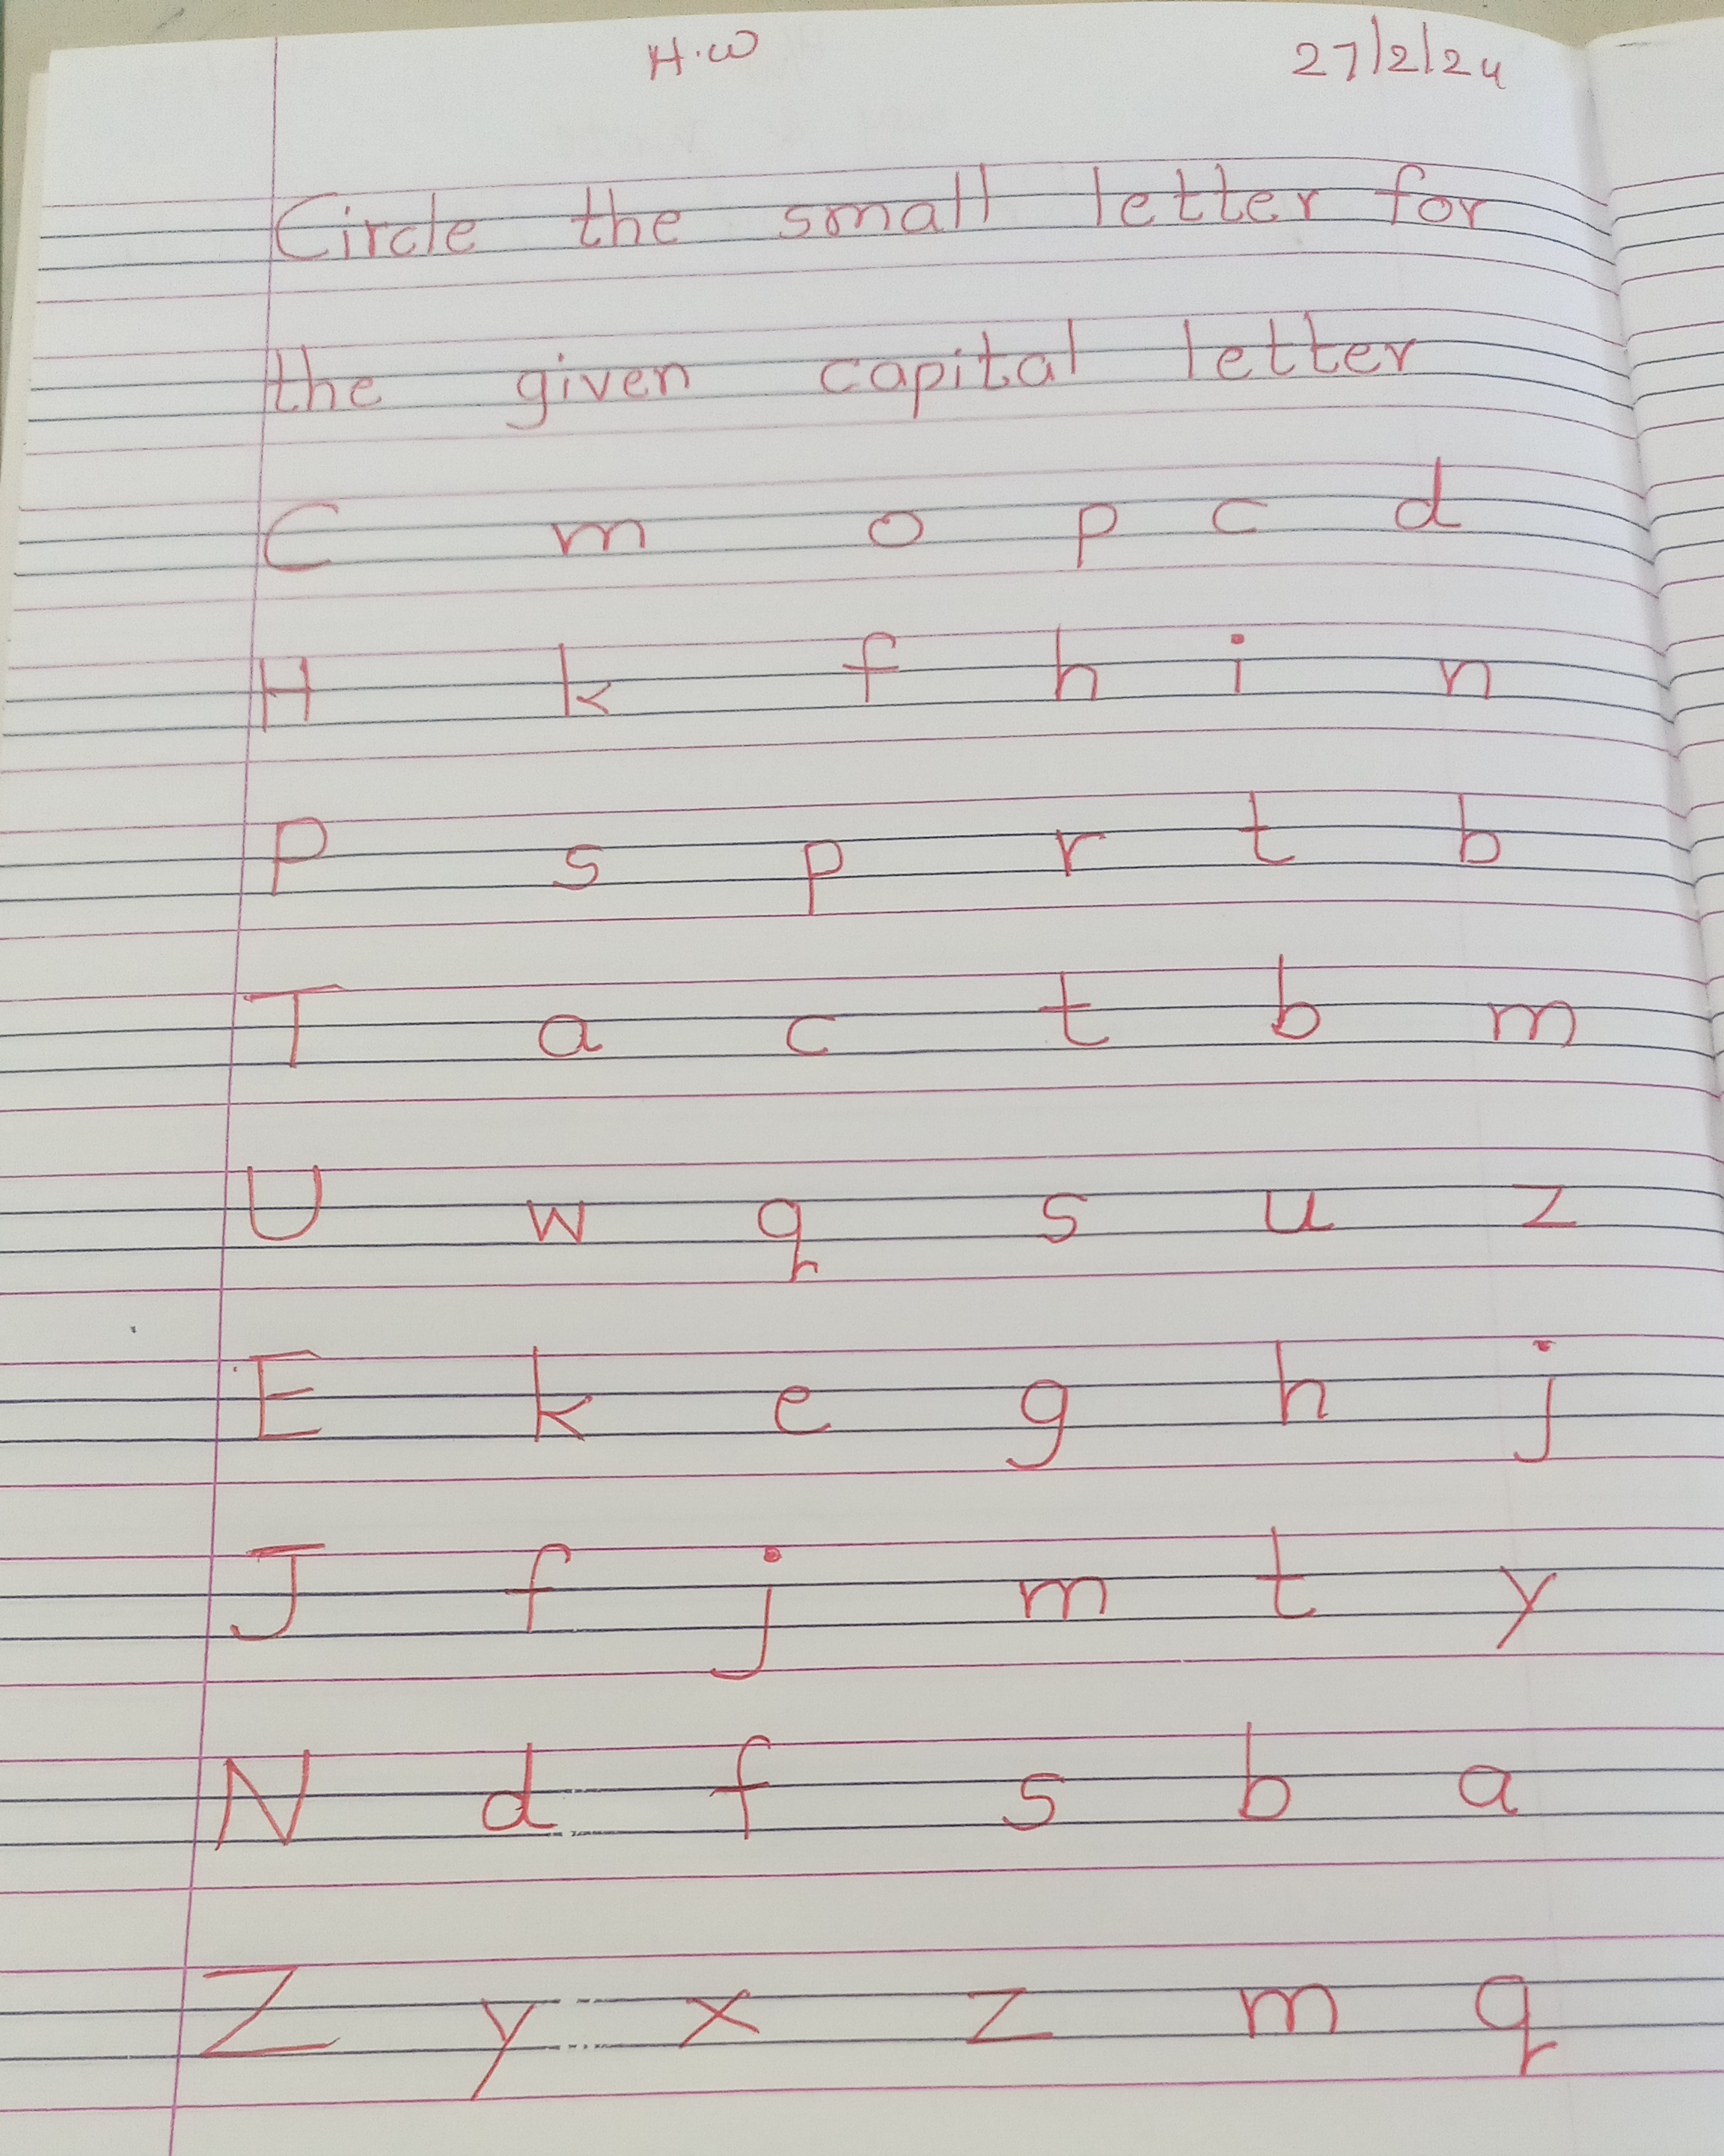 H.W 27/2/24
Circle the small letter for
the given capital letter
C m o p c d
H k f h i n
P s p r t b
T a c t b m
U w q s u z
E k e g h j
J f j m t y
N d f s b a
Z y x z m q